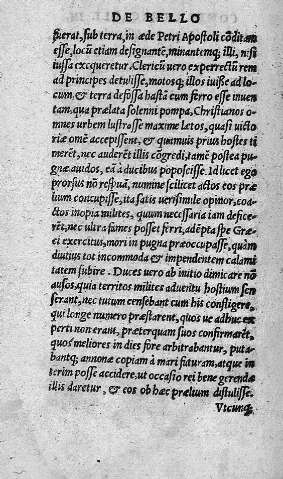 DE BELLO
fuerat, sub terra, in æde Petri Apostoli cōditam
esse, locū etiam designantē, minantemq; illi, nisi
iussa excqueretur. Clericū uero experrectū rem
ad principes detulisse, motosq; illos iuisse ad lo-
cum, & terra defossa hastā cum ferro esse inuen
tam, qua prælata solenni pompa, Christianos o-
mnes urbem lustrosse maxime letos, quasi uicto
riæ omē accepissent, & quominus prius hostes ti
merēt, nec auderēt illis cōgredi, iamcē postea pu
gnæ auidos, eā à ducibus poposcisse. Id licet ego
prorsus nō respuā, numine scilicet actos eos præ
lium concupisse, ita satis uerisimile opinor, coa-
ctos inopia milites, quum necessaria tam defice-
rēt, nec ultra fames posset ferri, adēpta spe Græ-
ci exercitus, mori in pugna præoccupasse, quàm
diutius tot incommoda & impendentem calami
tatem subire. Duces uero ab initio dimicare nō
ausos, quia territos milites aduentu hostium sen
serant, nec tutum censebant cum his confligere,
qui longe numero præstarent, quos ue adhuc ex
perti non erant, præterquam suos confirmarēt,
quos meliores in dies fore arbitrabantur, puta-
bantq; annonæ copiam à mari futuram, atque in
terim posse accidere, ut occasio rei bene gerendæ
illis daretur, & eos ob hæc prælium distulisse.
Vtcunq;